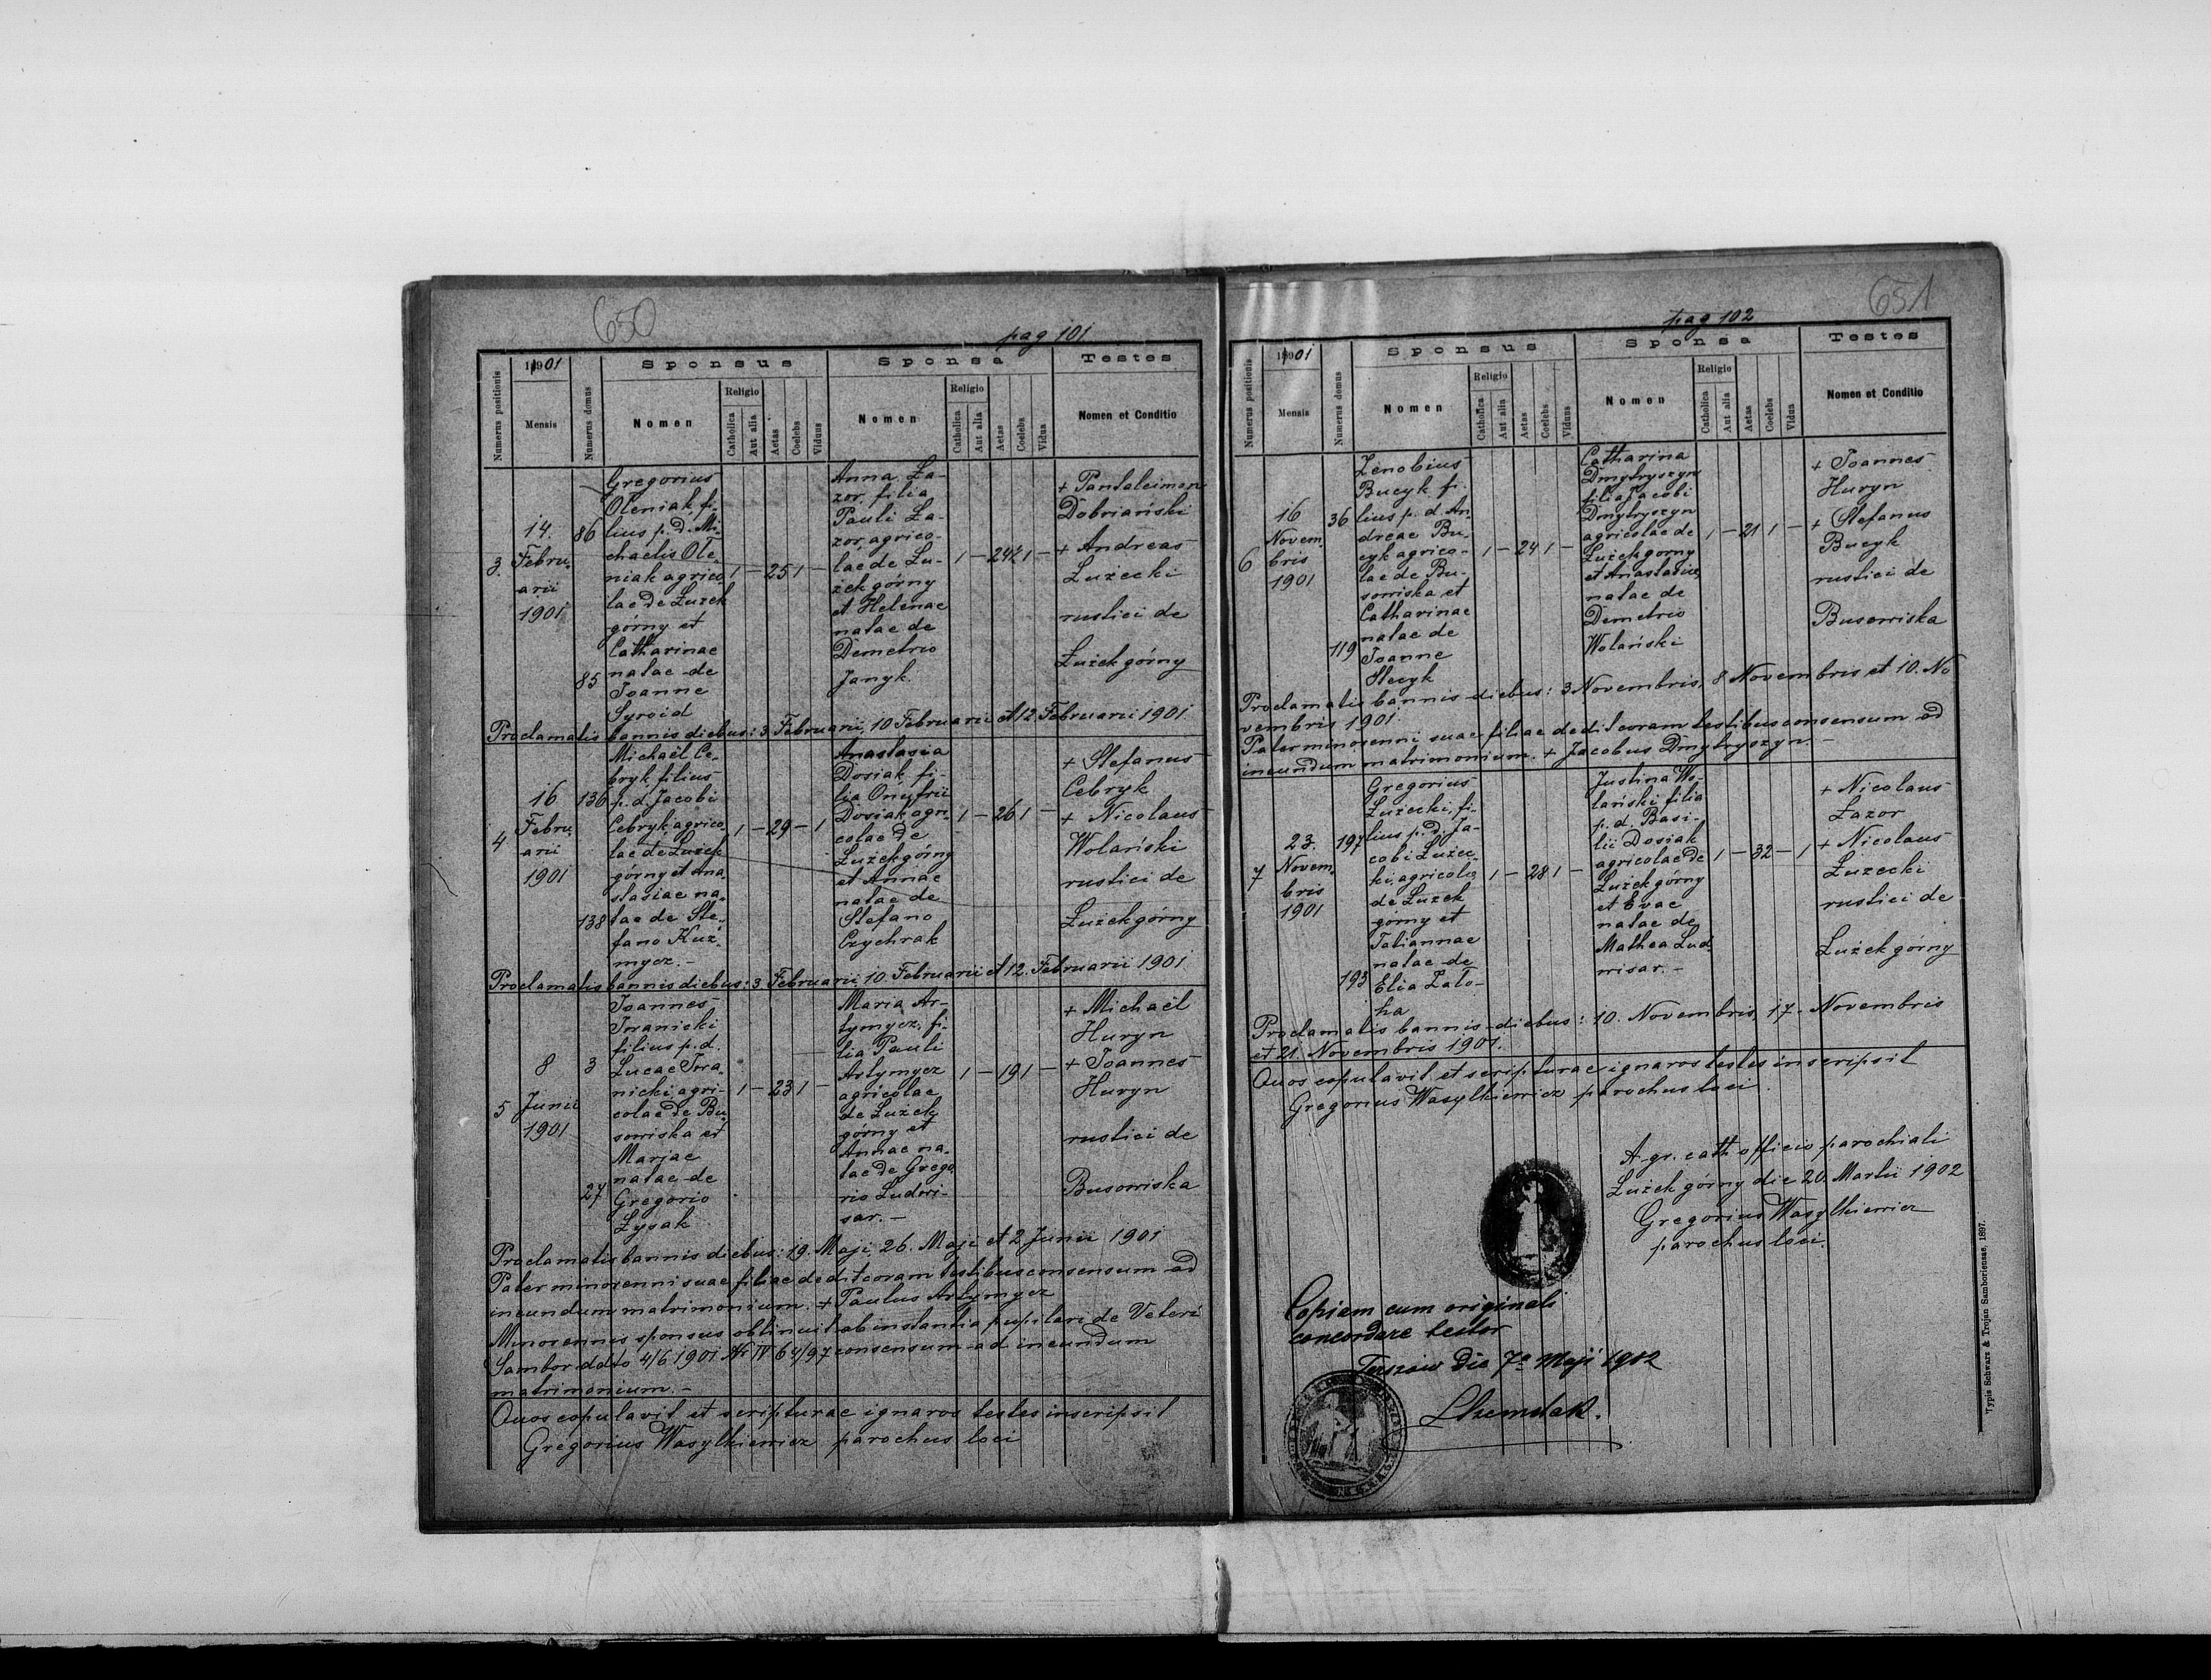 650
pag 101
Numerus positionis
1901
Mensis
Numerus domus
Sponsus
Nomen
Religio
Catholica
Aut alia
Aetas
Coelebs
Viduus
Sponsa
Nomen
Religio
Catholica
Aut alia
Aetas
Coelebs
Vidua
Testes
Nomen et Conditio
3.
14.
Febru-
arii
1901
86
85
Gregorius
Oleniak, fi-
lius p. d. Mi-
chaelis Ole-
niak agrico-
lae de Łużek
górny et
Catharinae
natae de
Joanne
Syroid
1 — 25 1 —
Anna Ła-
zor, filia
Pauli Ła-
zor, agrico-
lae de Łu-
żek górny
et Helenae
natae de
Demetrio
Janyk.
1 — 24½ 1 —
+ Pantaleimon
Dobriański
+ Andreas
Łużecki
rustici de
Łużek górny
Proclamatis bannis diebus: 3 Februarii, 10 Februarii et 12 Februarii 1901
4
16
Febru-
arii
1901
136
138
Michaël Ce-
bryk filius
p. d. Jacobi
Cebryk, agrico-
lae de Łużek
górny et Ana-
stasiae na-
tae de Ste-
fano Kuź-
mycz. —
1 — 29 — 1
Anastasia
Dosiak fi-
lia Onufrii
Dosiak agri-
colae de
Łużek górny
et Annae
natae de
Stefano
Czychrak
1 — 26 1 —
+ Stefanus
Cebryk
+ Nicolaus
Wolański
rustici de
Łużek górny
Proclamatis bannis diebus: 3 Februarii, 10. Februarii et 12. Februarii 1901
5
8
Junii
1901
3
27
Joannes
Iwanicki
filius p. d.
Lucae Iwa-
nicki, agri-
colae de Bu-
sowiska et
Mariae
natae de
Gregorio
Łysak
1 — 23 1 —
Maria Ar-
tymycz, fi-
lia Pauli
Artymycz
agricolae
de Łużek
górny et
Annae na-
tae de Grego-
rio Ludwi-
sar. —
1 — 19 1 —
+ Michaël
Huryn
+ Joannes
Huryn
rustici de
Busowiska
Proclamatis bannis diebus: 19. Maji, 26. Maji et 2 Junii 1901
Pater minorenni suae filiae dedit coram testibus consensum ad
ineundum matrimonium. + Paulus Artymycz
Minorennis sponsus obtinuit ab instantia pupilari de Veteri
Sambor ddto 4/6 1901 Nr IV 64/97 consensum ad ineundum
matrimonium. —
Quos copulavit et scripturae ignaros testes inscripsit
Gregorius Wasylkiewicz parochus loci
651
pag 102
Numerus positionis
1901
Mensis
Numerus domus
Sponsus
Nomen
Religio
Catholica
Aut alia
Aetas
Coelebs
Viduus
Sponsa
Nomen
Religio
Catholica
Aut alia
Aetas
Coelebs
Vidua
Testes
Nomen et Conditio
6
16
Novem-
bris
1901
36
119
Zenobius
Bucyk fi-
lius p. d. An-
dreae Bu-
cyk agrico-
lae de Bu-
sowiska et
Catharinae
natae de
Joanne
Stecyk
1 — 24 1 —
Catharina
Dmytryszyn
filia Jacobi
Dmytryszyn
agricolae de
Łużek górny
et Anastasiae
natae de
Demetrio
Wolański
1 — 21 1 —
+ Joannes
Huryn
+ Stefanus
Bucyk
rustici de
Busowiska
Proclamatis bannis diebus: 3 Novembris, 8 Novembris et 10. No
vembris 1901.
Pater minorenni suae filiae dedit coram testibus consensum ad
ineundum matrimonium. + Jacobus Dmytryszyn. —
7
23.
Novem-
bris
1901
197
193
Gregorius
Łużecki, fi-
lius p. d. Ja-
cobi Łuże-
cki, agricolae
de Łużek
górny et
Tatiannae
natae de
Elia Zato-
ka
1 — 28 1 —
Justina Wo-
lański filia
p. d. Basi-
lii Dosiak
agricolae de
Łużek górny
et Evae
natae de
Mathea Lud-
wisar. —
1 — 32 — 1
+ Nicolaus
Łazor
+ Nicolaus
Łużecki
rustici de
Łużek górny
Proclamatis bannis diebus: 10. Novembris, 17. Novembris
et 21. Novembris 1901.
Quos copulavit et scripturae ignaros testes inscripsit
Gregorius Wasylkiewicz parochus loci.
A gr. cath. officio parochiali
Łużek górny die 20. Martii 1902
Gregorius Wasylkiewicz
parochus loci.
Copiam cum originali
concordare testor
Terszów die 7a Maji 1902
Typis Schwarz & Trojan Samboriensae, 1897.